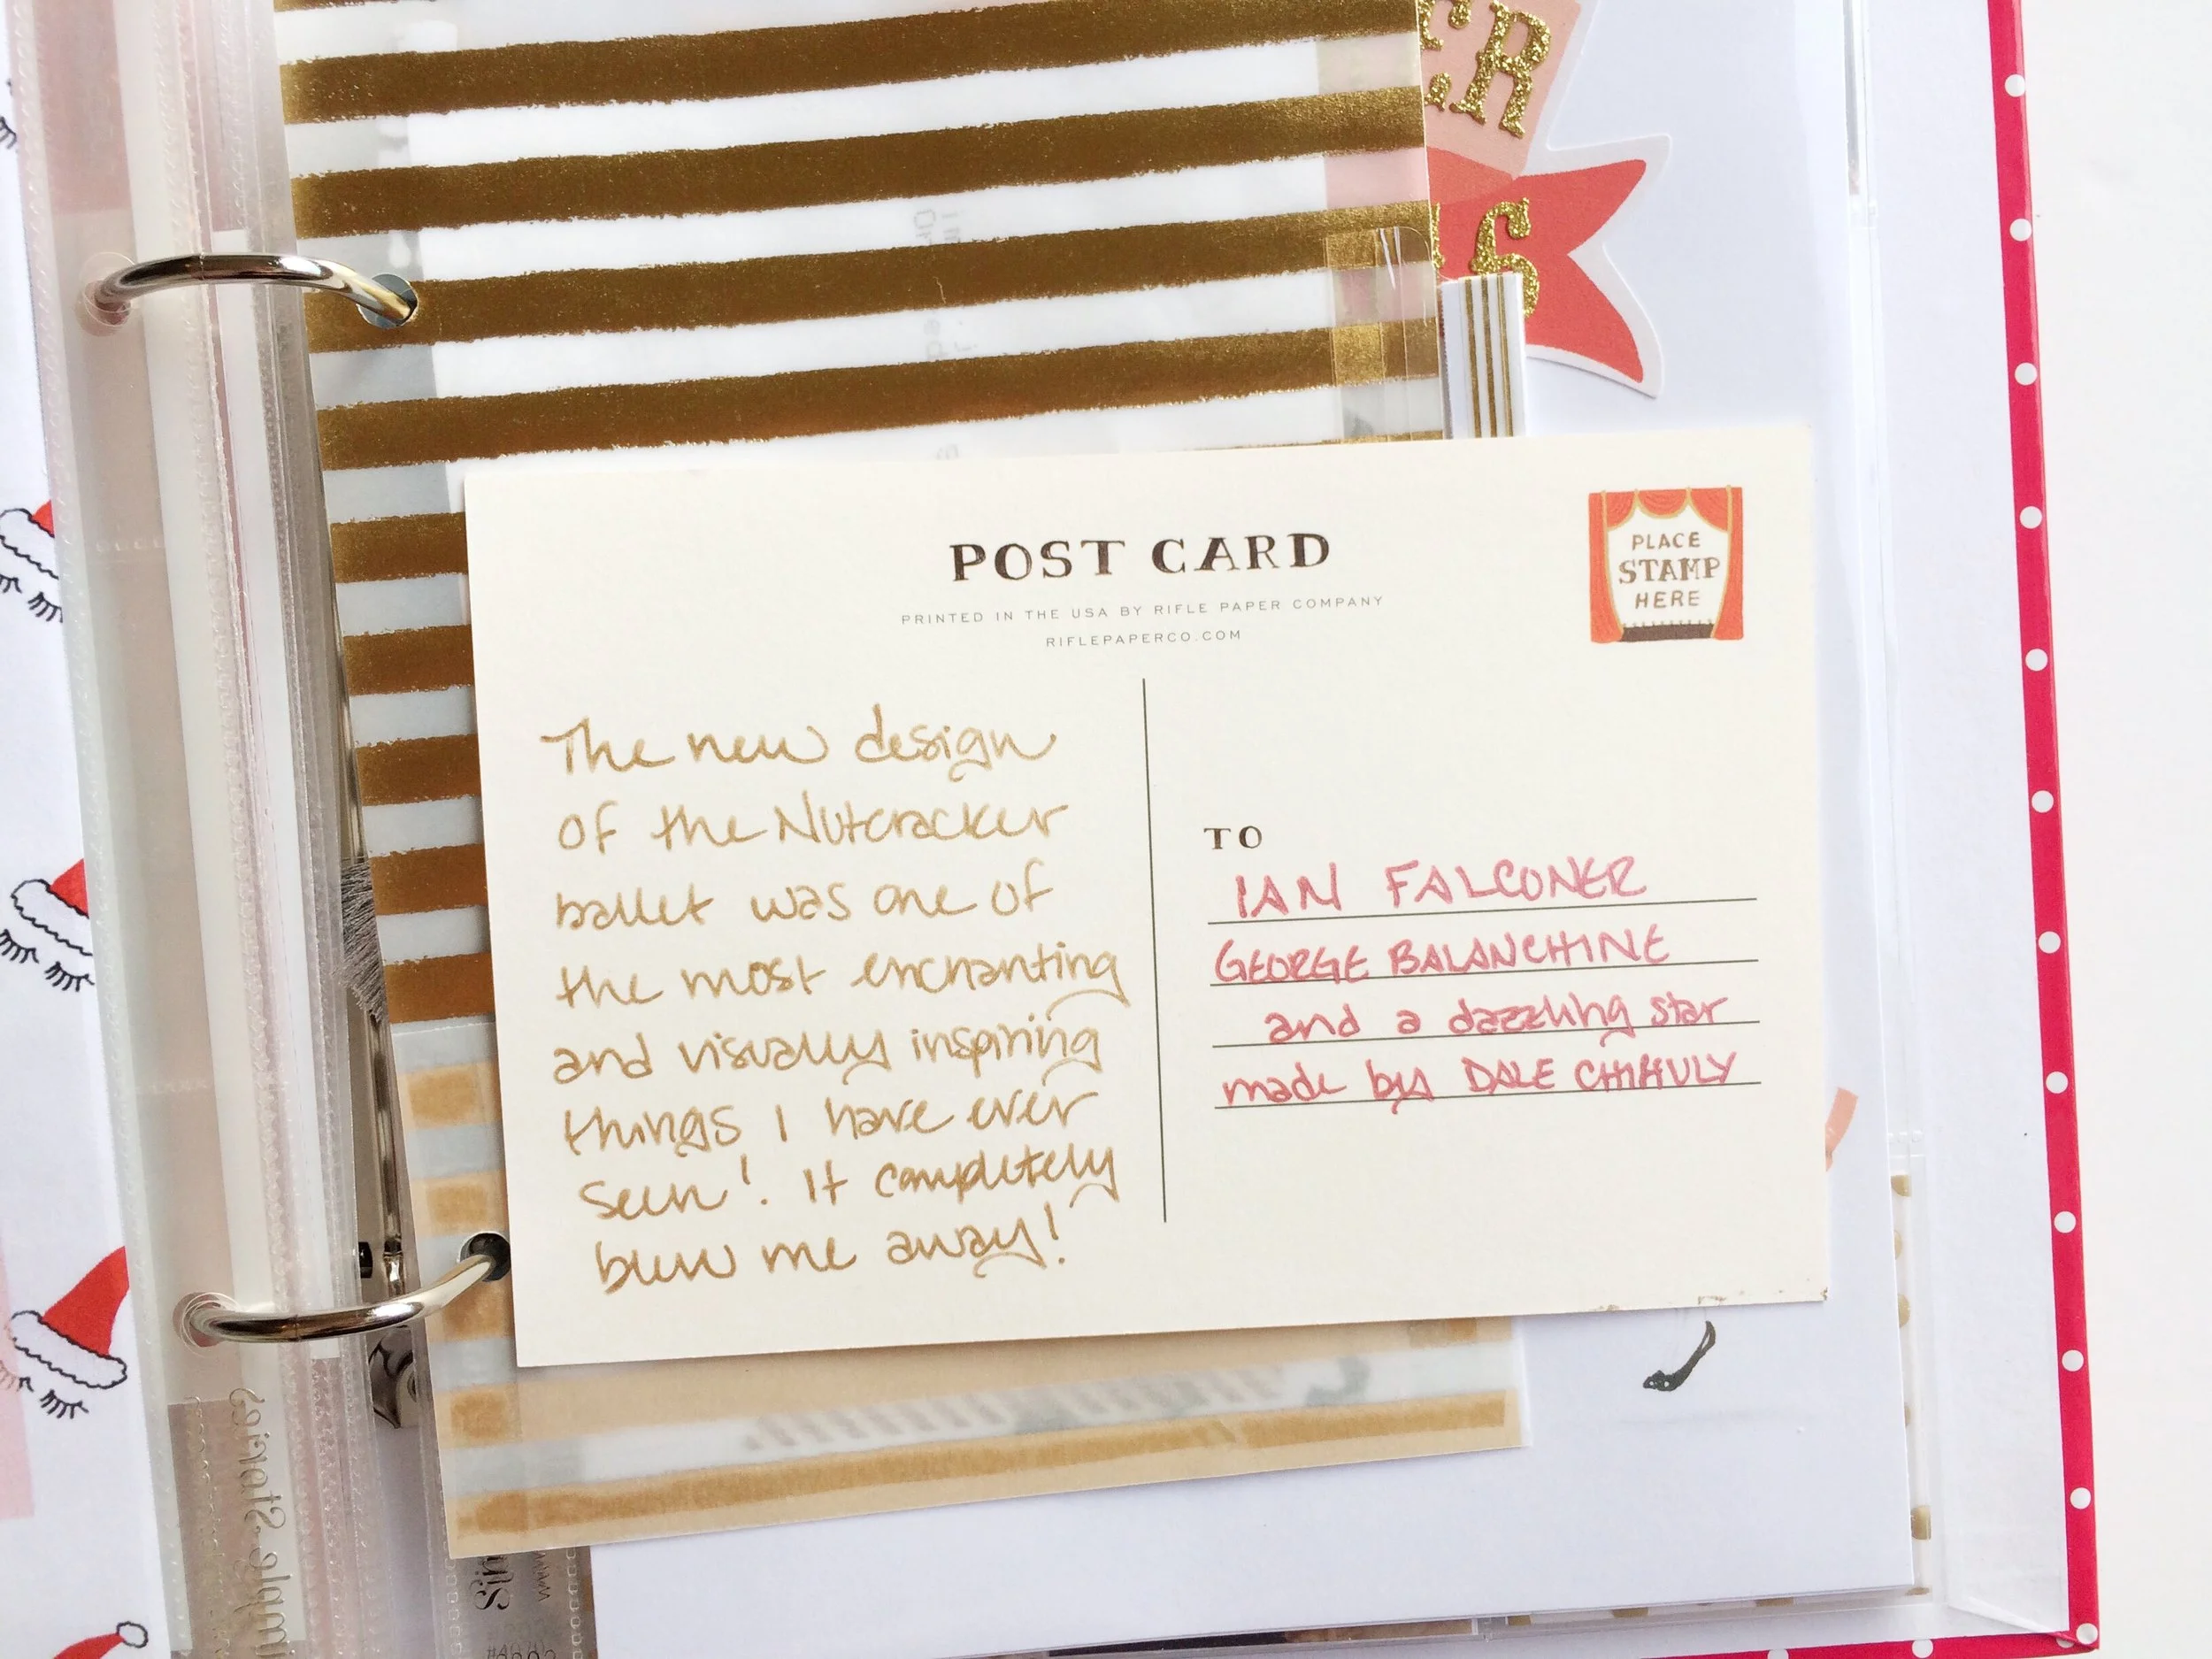 ER
S
POST CARD
PRINTED IN THE USA BY RIFLE PAPER COMPANY
RIFLEPAPERCO.COM
PLACE
STAMP
HERE
The new design
of the Nutcracker
ballet was one of
the most enchanting
and visually inspiring
things I have ever
seen! It completely
blew me away!
TO
IAN FALCONER
GEORGE BALANCHINE
and a dazzling star
made by DALE CHIHULY